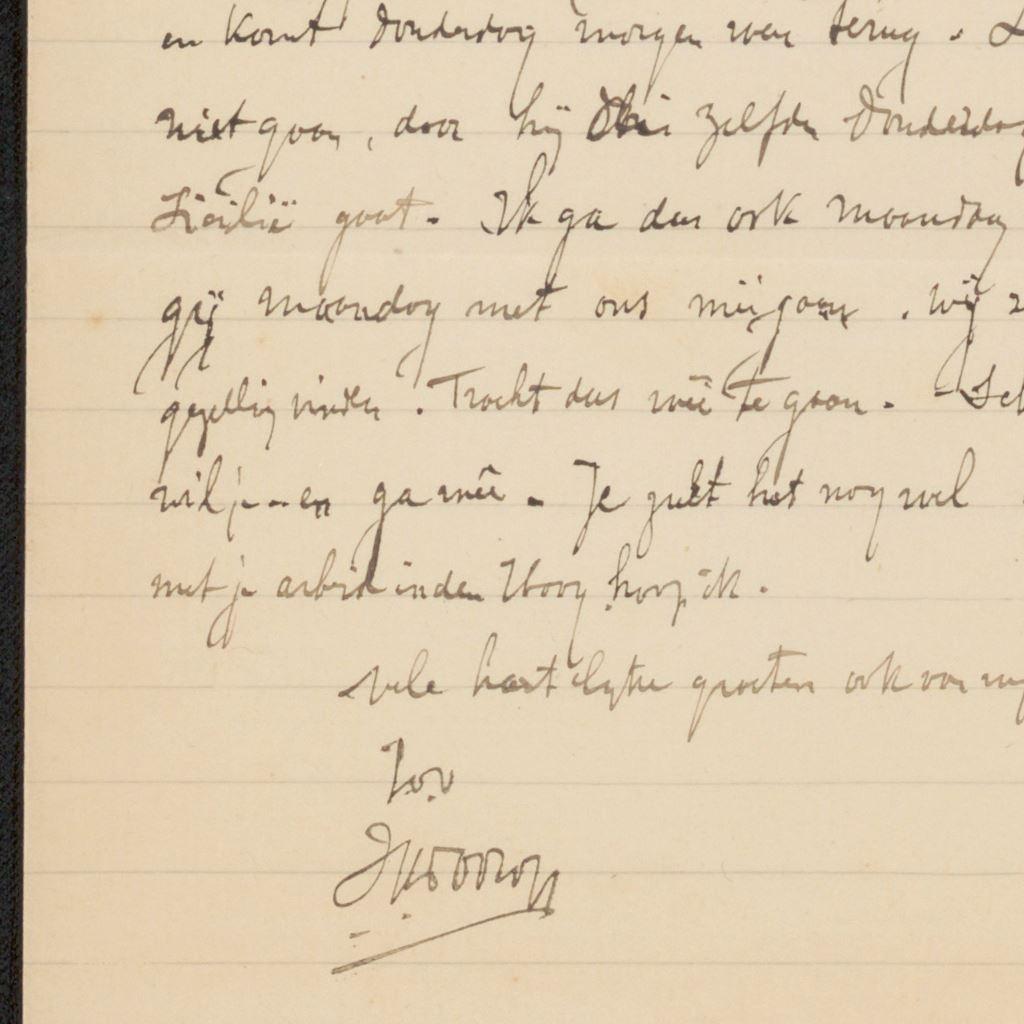 en komt Donderdag morgen weer terug. L
niet gaan, daar hij zelfden Donderdag
Sicilië gaat. Ik ga dus ook maandag
gij maandag met ons meegaan. Wij z
gezellig vinden. Tracht dus meê te gaan. - Sch
wil je - en ga meê. Je zult het nog wel
met je arbeid inden Haag hoop ik.
vele hartelijke groeten ook van mij
t.a.v
JHToorop